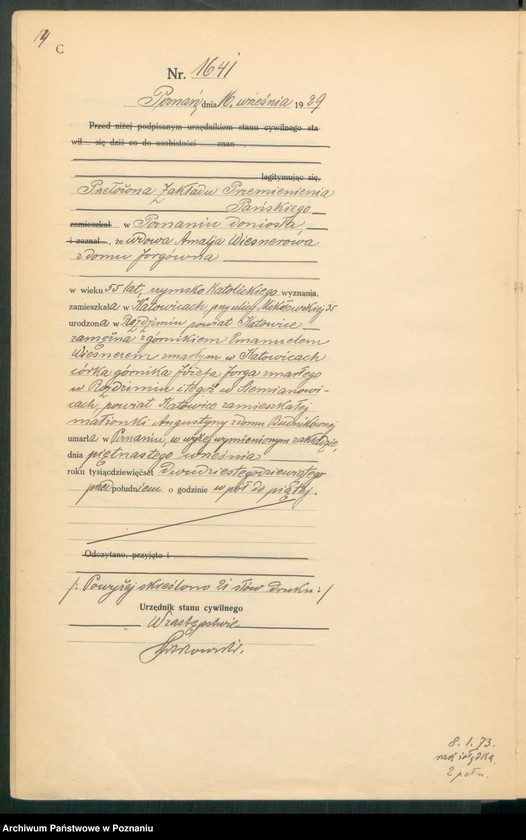 C
Nr. 1641
Poznań, dnia 16. września 1929
Przed niżej podpisanym urzędnikiem stanu cywilnego sta
wił się dziś co do osobistości znan
legitymując się,
Przełożona Zakładu Przemienienia
Pańskiego
zamieszkał w Poznaniu doniosła,
i zeznał, że wdowa Amalja Wiesnerowa
z domu Jorgówna
w wieku 55 lat, rzymsko katolickiego wyznania,
zamieszkała w Katowicach, przy ulicy Mikołowskiej 35
urodzona w Roździniu powiat Katowice
zamężna z górnikiem Emanuelem
Wiesnerem zmarłym w Katowicach
córka górnika Józefa Jorga zmarłego
w Roździniu i tegoż w Siemianowi-
cach, powiat Katowice zamieszkałej
małżonki Augustyny z domu
umarła w Poznaniu, w wyżej wymienionym zakładzie,
dnia piętnastego września
roku tysiącdziewięćset dwudziestegodziewiątego
przed południem o godzinie w pół do piątej.
Odczytano, przyjęto i
/: Powyżej skreślono 21 słów druku :/
Urzędnik stanu cywilnego
W zastępstwie
8.1.73.
2 potw.
Archiwum Państwowe w Poznaniu